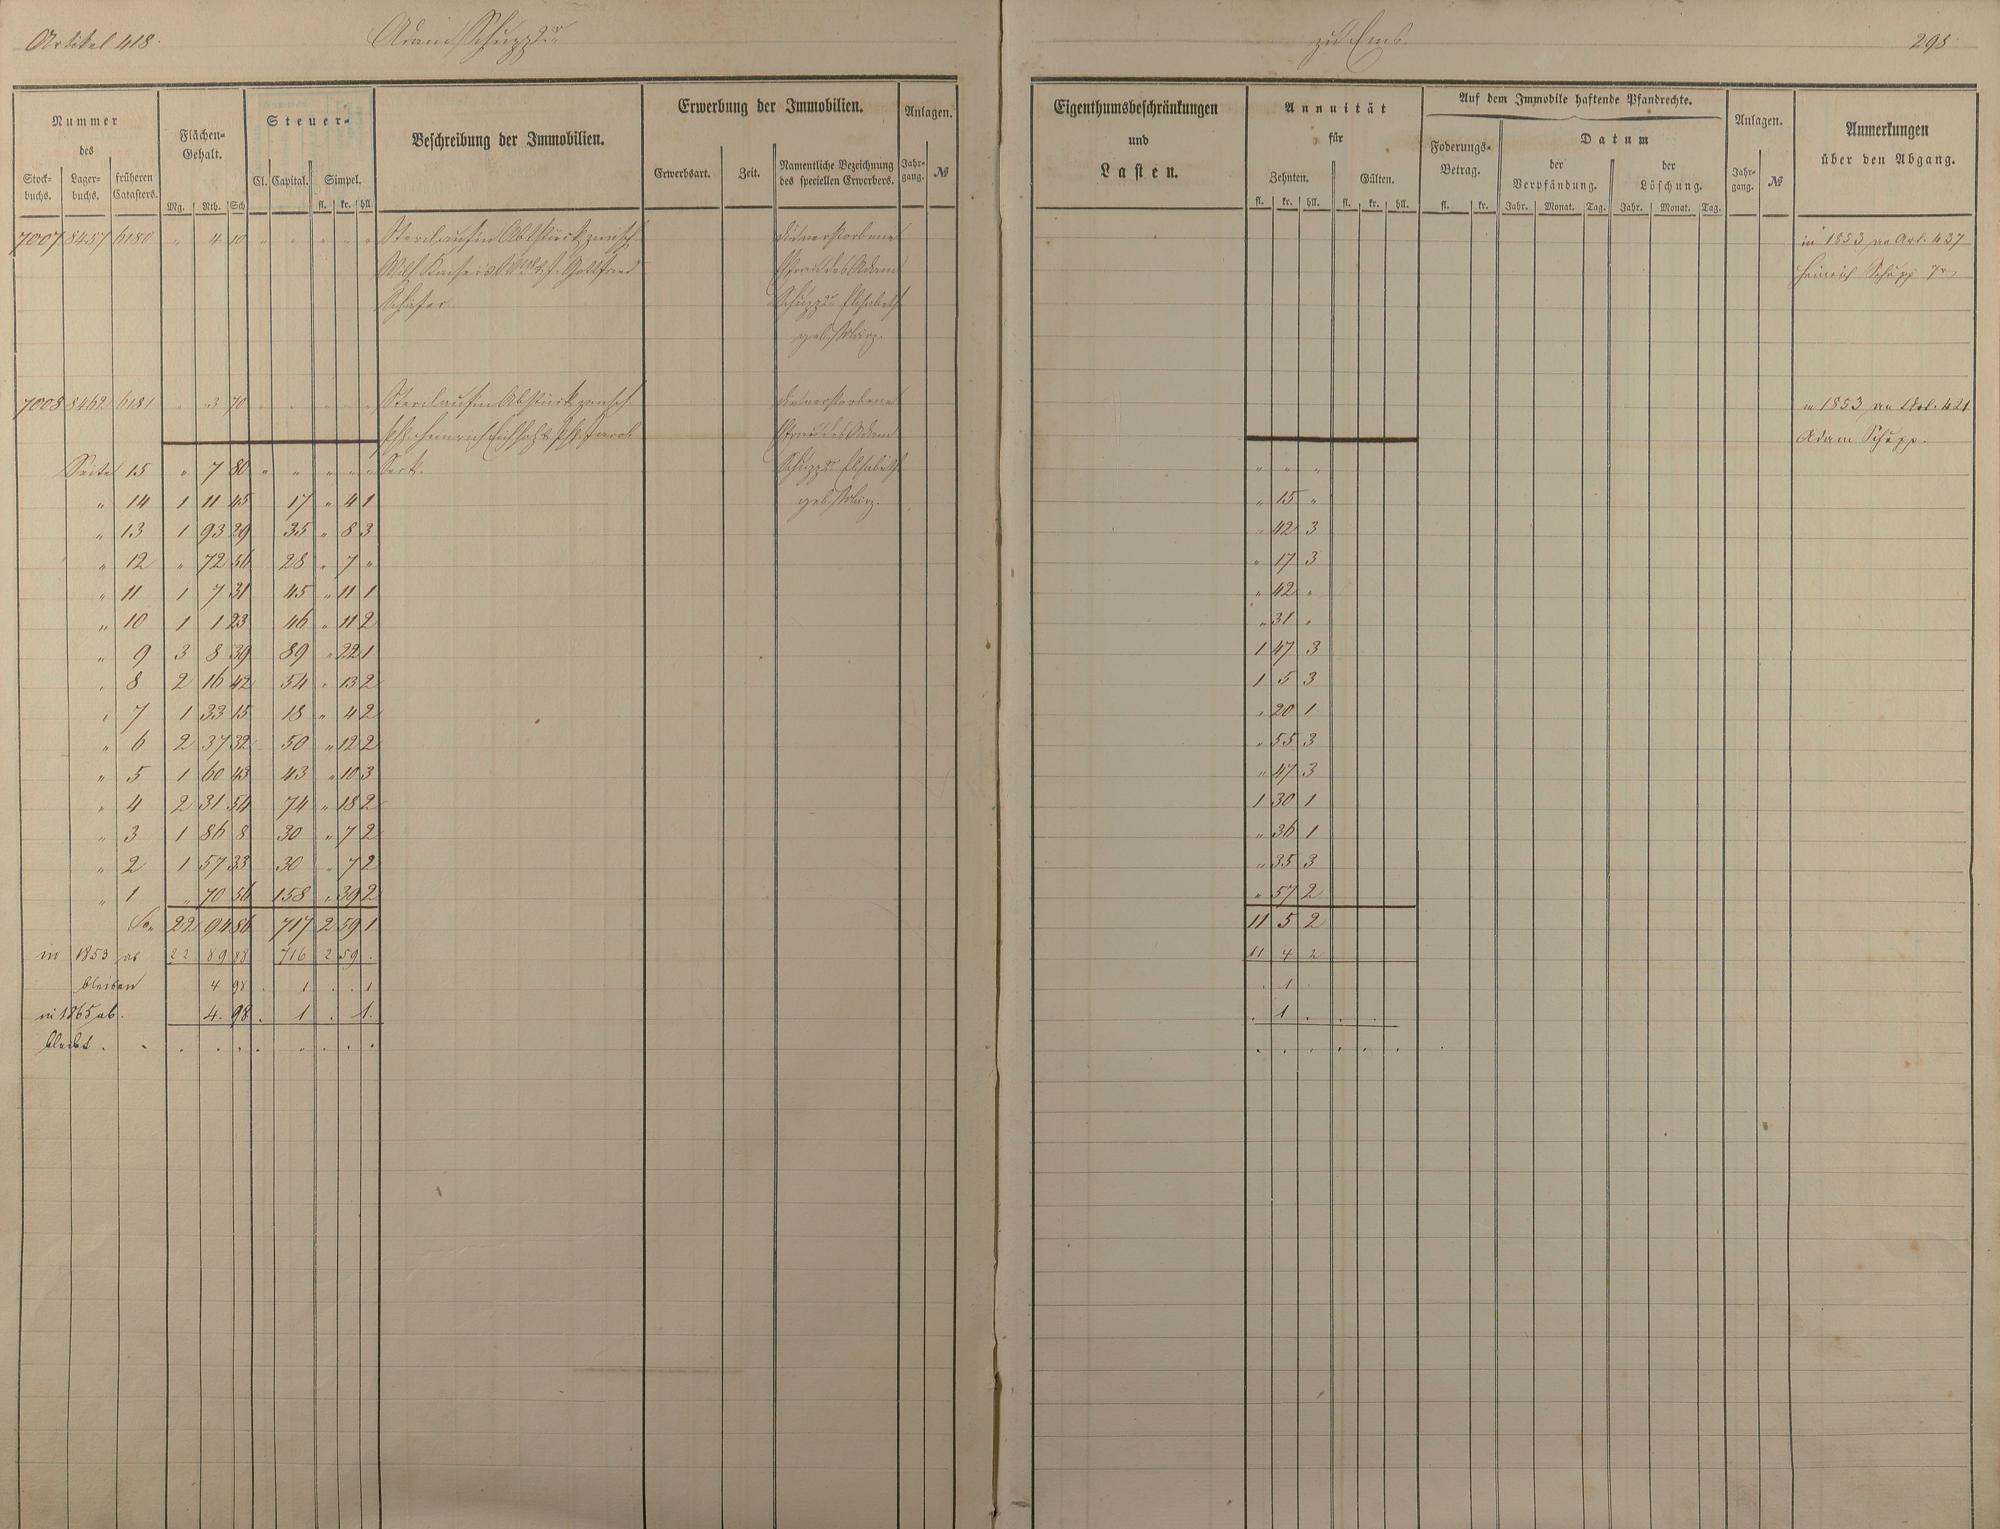 Artikel 418. Adam Schupp zu Ems. 298
Nummer
des
Stock-
buchs.
Lager-
buchs.
früheren
Catasters.
Flächen-
Gehalt.
Mg. Rth. Sch
Steuer-
Cl. Capital. Simpel.
fl. kr. hll.
Beschreibung der Immobilien.
Erwerbung der Immobilien.
Erwerbsart. Zeit. Namentliche Bezeichnung
des speciellen Erwerbers.
Anlagen.
Jahr-
gang. №
Eigenthumsbeschränkungen
und
Lasten.
Annuität
für
Zehnten. Gülten.
fl. kr. hll. fl. kr. hll.
Auf dem Immobile haftende Pfandrechte.
Foderungs-
Betrag.
fl. kr.
Datum
der
Verpfändung.
Jahr. Monat. Tag.
der
Löschung.
Jahr. Monat. Tag.
Anlagen.
Jahr-
gang. №
Anmerkungen
über den Abgang.
7007 8457 6180 " 4 10 " " " " " die verstorbene in 1853 an Art. 437
Gottfried Ehefrau des Adam Heinrich Schupp 7r
Schäfer Schupp Elisabeth
geb.
7008 8462 6181 " 3 70 die verstorbene in 1853 an Art. 421
Ehefrau des Adam Adam Schupp.
Seite 15 " 7 80 " " " " " Schupp Elisabeth " " "
" 14 1 11 45 17 " 4 1 geb. " 15 "
" 13 1 93 29 35 " 8 3 " 42 3
" 12 " 72 56 28 " 7 " " 17 3
" 11 1 7 31 45 " 11 1 " 42 "
" 10 1 1 23 46 " 11 2 " 31 "
" 9 3 8 39 89 " 22 1 1 47 3
" 8 2 16 42 54 " 13 2 1 5 3
" 7 1 33 15 18 " 4 2 " 20 1
" 6 2 37 32 50 " 12 2 " 55 3
" 5 1 60 43 43 " 10 3 " 47 3
" 4 2 31 54 74 " 18 2 1 30 1
" 3 1 86 8 30 " 7 2 " 36 1
" 2 1 57 33 30 " 7 2 " 35 3
" 1 " 70 56 158 " 39 2 " 57 2
Sa. 22 94 86 717 2 59 1 11 5 2
in 1853 ab 22 89 88 716 2 59 . 11 4 2
bleiben 4 98 . 1 . . 1 . 1 .
in 1865 ab. 4. 98. . 1 . 1. . 1 . . .
bleibt . . . . . . . . . . . . . . . . . .